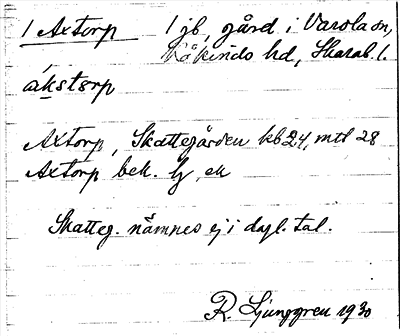 1 Axtorp 1 jb, gård i Varola sn,
Kåkinds hd, Skarab. l.
ákstɔrp
Axtorp, Skattegården kb 24, mtl 28
Axtorp bek. lj, ek
Skatteg. nämnes ej i dagl. tal.
R. Ljunggren 1930